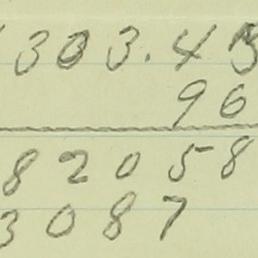 303.43
96
82058
3087